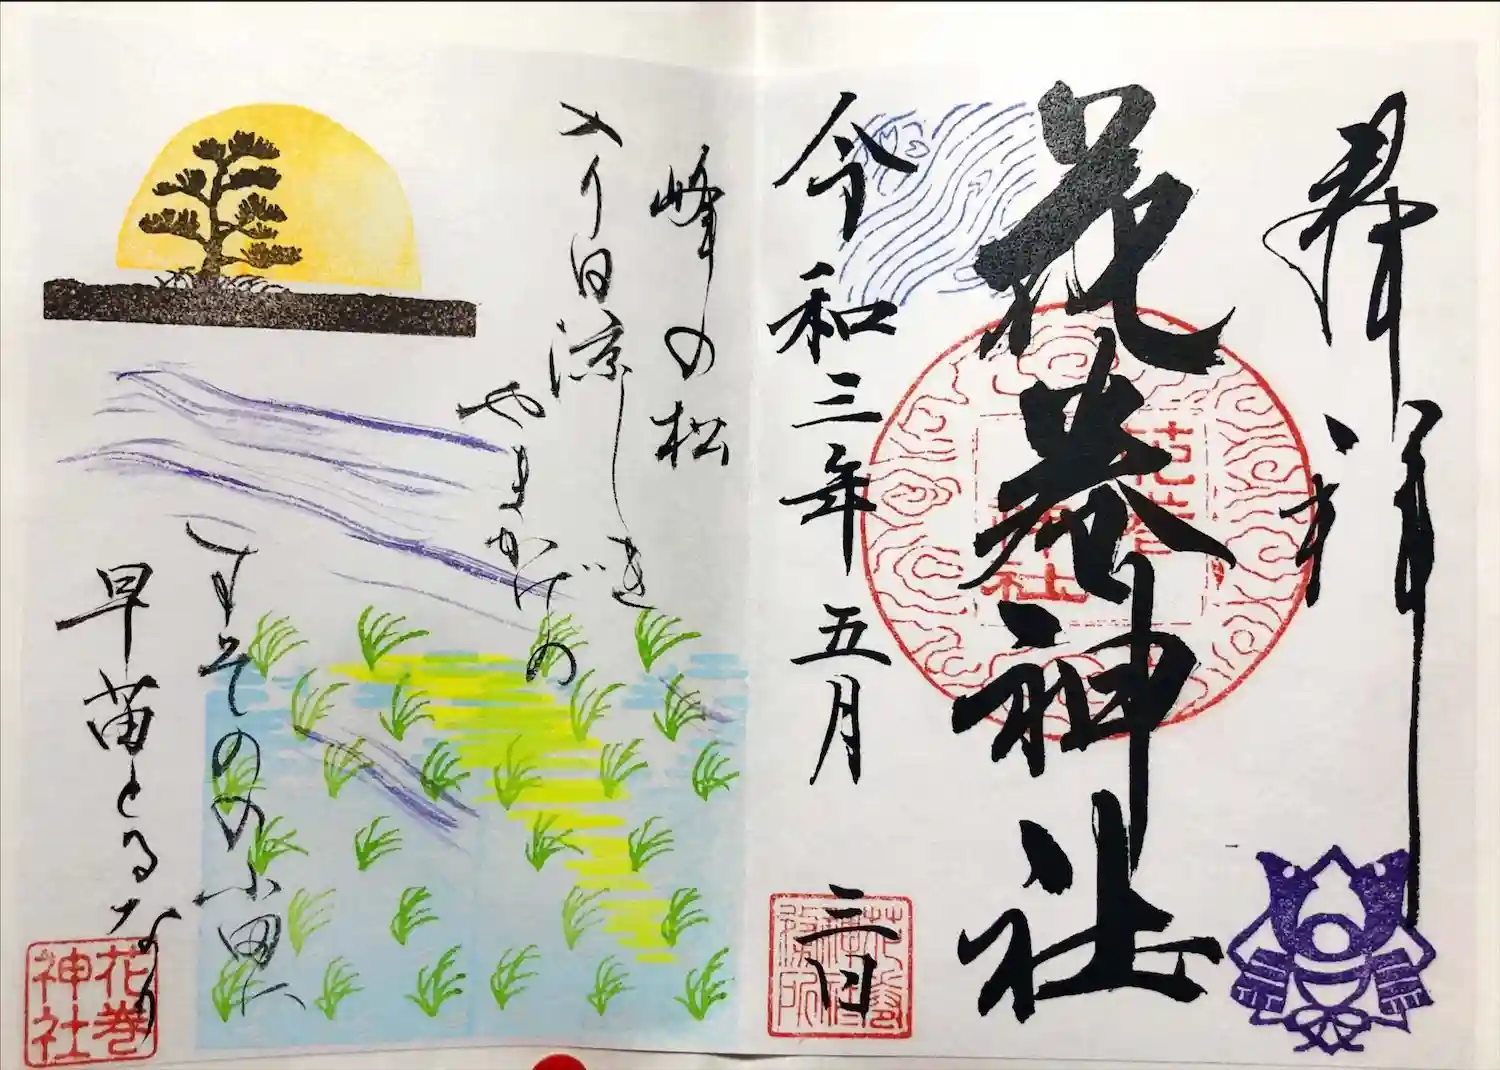 奉拝
花巻神社
花巻神社
令和三年 五月 二日
峰の松
入り日涼しき
やまかげの
すそのの小田に
早苗とるなり
花巻神社